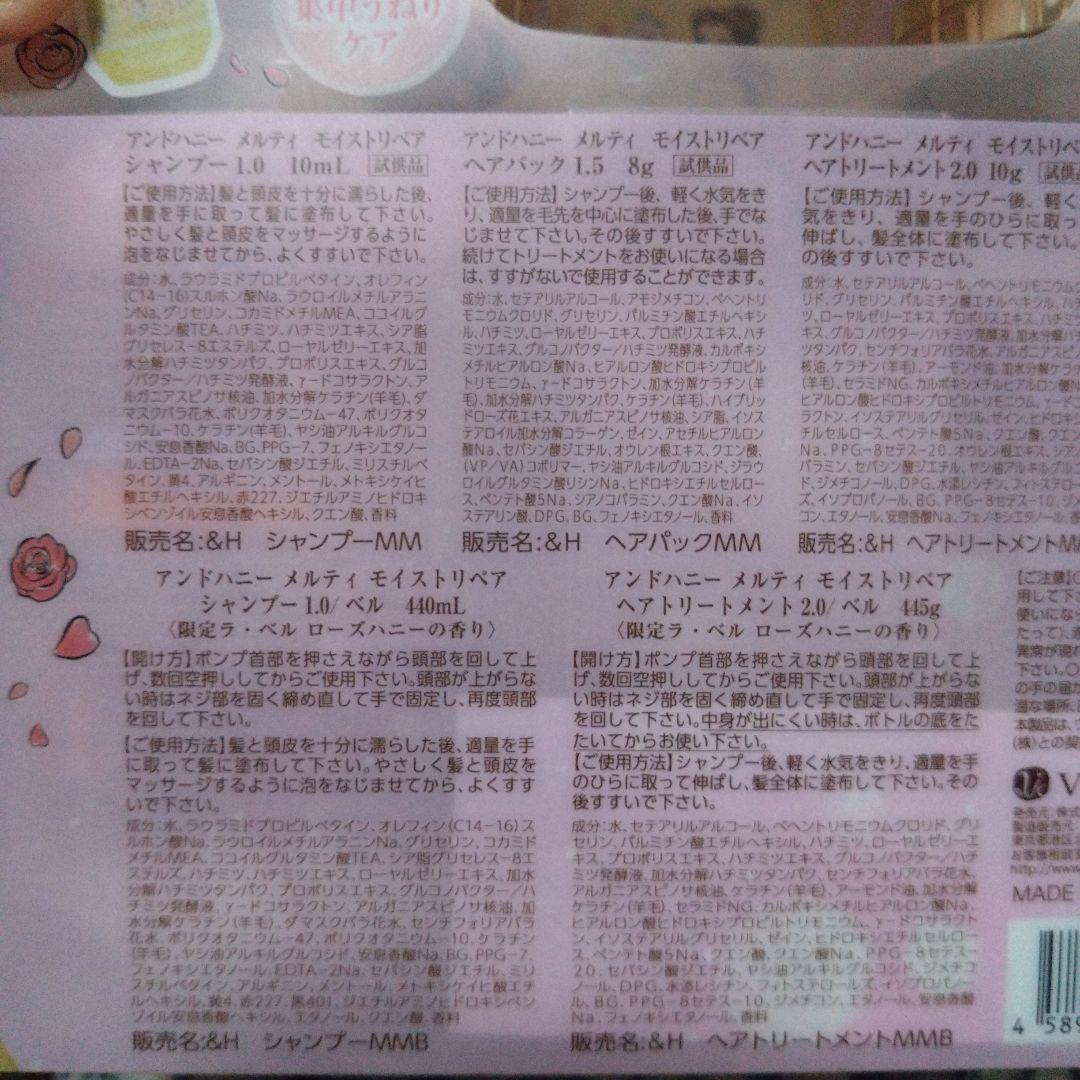 集中うねり
ケア
アンドハニー メルティ モイストリペア
シャンプー1.0 10mL 試供品
【ご使用方法】髪と頭皮を十分に濡らした後、
適量を手に取って髪に塗布して下さい。
やさしく髪と頭皮をマッサージするように
泡をなじませてから、よくすすいで下さい。
成分:水、ラウラミドプロピルベタイン、オレフィン
(C14-16)スルホン酸Na、ラウロイルメチルアラニ
ンNa、グリセリン、コカミドメチルMEA、ココイルグ
ルタミン酸TEA、ハチミツ、ハチミツエキス、シア脂
グリセレス-8エステルズ、ローヤルゼリーエキス、加
水分解ハチミツタンパク、プロポリスエキス、グルコ
ノバクター/ハチミツ発酵液、γ-ドコサラクトン、ア
ルガニアスピノサ核油、加水分解ケラチン(羊毛)、ダ
マスクバラ花水、ポリクオタニウム-47、ポリクオタ
ニウム-10、ケラチン(羊毛)、ヤシ油アルキルグルコ
シド、安息香酸Na、BG、PPG-7、フェノキシエタノー
ル、EDTA-2Na、セバシン酸ジエチル、ミリスチルベ
タイン、黄4、アルギニン、メントール、メトキシケイヒ
酸エチルヘキシル、赤227、ジエチルアミノヒドロキ
シベンゾイル安息香酸ヘキシル、クエン酸、香料
販売名:&H シャンプーMM
アンドハニー メルティ モイストリペア
ヘアパック1.5 8g 試供品
【ご使用方法】シャンプー後、軽く水気をき
り、適量を毛先を中心に塗布した後、手でな
じませて下さい。その後すすいで下さい。
続けてトリートメントをお使いになる場合
は、すすがないで使用することができます。
成分:水、セテアリルアルコール、アモジメチコン、ベヘントリ
モニウムクロリド、グリセリン、パルミチン酸エチルヘキシ
ル、ハチミツ、ローヤルゼリーエキス、プロポリスエキス、ハチ
ミツエキス、グルコノバクター/ハチミツ発酵液、カルボキシ
メチルヒアルロン酸Na、ヒアルロン酸ヒドロキシプロピル
トリモニウム、γ-ドコサラクトン、加水分解ケラチン(羊
毛)、加水分解ハチミツタンパク、ケラチン(羊毛)、ハイブリッ
ドローズ花エキス、アルガニアスピノサ核油、シア脂、イソス
テアロイル加水分解コラーゲン、ゼイン、アセチルヒアルロン
酸Na、セバシン酸ジエチル、オウレン根エキス、クエン酸、
(VP/VA)コポリマー、ヤシ油アルキルグルコシド、ジラウ
ロイルグルタミン酸リシンNa、ヒドロキシエチルセルロー
ス、ペンテト酸5Na、シアノコバラミン、クエン酸Na、イソ
ステアリン酸、DPG、BG、フェノキシエタノール、香料
販売名:&H ヘアパックMM
アンドハニー メルティ モイストリペ
ヘアトリートメント2.0 10g 試供
【ご使用方法】シャンプー後、軽く
気をきり、適量を手のひらに取っ
伸ばし、髪全体に塗布して下さい。
の後すすいで下さい。
成分:水、セテアリルアルコール、ベヘントリモニウムク
リド、グリセリン、パルミチン酸エチルヘキシル、ハチ
ツ、ローヤルゼリーエキス、プロポリスエキス、ハチ
キス、グルコノバクター/ハチミツ発酵液、加水分解
ツタンパク、センチフォリアバラ花水、アルガニアスピ
核油、ケラチン(羊毛)、アーモンド油、加水分解ケラチ
(羊毛)、セラミドNG、カルボキシメチルヒアルロン酸N
ヒアルロン酸ヒドロキシプロピルトリモニウム、γ-ド
ラクトン、イソステアリルグリセリル、ゼイン、ヒドロキシ
チルセルロース、ペンテト酸5Na、クエン酸、クエン
Na、PPG-8セテス-20、オウレン根エキス、シア
バラミン、セバシン酸ジエチル、ヤシ油アルキルグルコ
ド、ジメチコノール、DPG、水添レシチン、フィトステロ
ズ、イソプロパノール、BG、PPG-8セテス-10、ジメ
コン、エタノール、安息香酸Na、フェノキシエタノール、香
販売名:&H ヘアトリートメントM
アンドハニー メルティ モイストリペア
シャンプー1.0/ベル 440mL
〈限定ラ・ベル ローズハニーの香り〉
【開け方】ポンプ首部を押さえながら頭部を回して上
げ、数回空押ししてからご使用下さい。頭部が上がらな
い時はネジ部を固く締め直して手で固定し、再度頭部
を回して下さい。
【ご使用方法】髪と頭皮を十分に濡らした後、適量を手
に取って髪に塗布して下さい。やさしく髪と頭皮を
マッサージするように泡をなじませてから、よくすす
いで下さい。
成分:水、ラウラミドプロピルベタイン、オレフィン(C14-16)ス
ルホン酸Na、ラウロイルメチルアラニンNa、グリセリン、コカミド
メチルMEA、ココイルグルタミン酸TEA、シア脂グリセレス-8エ
ステルズ、ハチミツ、ハチミツエキス、ローヤルゼリーエキス、加水
分解ハチミツタンパク、プロポリスエキス、グルコノバクター/ハチ
ミツ発酵液、γ-ドコサラクトン、アルガニアスピノサ核油、加水
分解ケラチン(羊毛)、ダマスクバラ花水、センチフォリアバラ
花水、ポリクオタニウム-47、ポリクオタニウム-10、ケラチン
(羊毛)、ヤシ油アルキルグルコシド、安息香酸Na、BG、PPG-7、
フェノキシエタノール、EDTA-2Na、セバシン酸ジエチル、ミリ
スチルベタイン、アルギニン、メントール、メトキシケイヒ酸エチ
ルヘキシル、黄4、赤227、黒401、ジエチルアミノヒドロキシベン
ゾイル安息香酸ヘキシル、エタノール、クエン酸、香料
販売名:&H シャンプーMMB
アンドハニー メルティ モイストリペア
ヘアトリートメント2.0/ベル 445g
〈限定ラ・ベル ローズハニーの香り〉
【開け方】ポンプ首部を押さえながら頭部を回して上
げ、数回空押ししてからご使用下さい。頭部が上がらな
い時はネジ部を固く締め直して手で固定し、再度頭部
を回して下さい。中身が出にくい時は、ボトルの底をた
たいてからお使い下さい。
【ご使用方法】シャンプー後、軽く水気をきり、適量を手
のひらに取って伸ばし、髪全体に塗布して下さい。その
後すすいで下さい。
成分:水、セテアリルアルコール、ベヘントリモニウムクロリド、グリ
セリン、パルミチン酸エチルヘキシル、ハチミツ、ローヤルゼリーエ
キス、プロポリスエキス、ハチミツエキス、グルコノバクター/ハチ
ミツ発酵液、加水分解ハチミツタンパク、センチフォリアバラ花水、
アルガニアスピノサ核油、ケラチン(羊毛)、アーモンド油、加水分解
ケラチン(羊毛)、セラミドNG、カルボキシメチルヒアルロン酸Na、
ヒアルロン酸ヒドロキシプロピルトリモニウム、γ-ドコサラクト
ン、イソステアリルグリセリル、ゼイン、ヒドロキシエチルセルロー
ス、ペンテト酸5Na、クエン酸、クエン酸Na、PPG-8セテス-
20、セバシン酸ジエチル、ヤシ油アルキルグルコシド、ジメチコ
ノール、DPG、水添レシチン、フィトステロールズ、イソプロパノー
ル、BG、PPG-8セテス-10、ジメチコン、エタノール、安息香酸
Na、フェノキシエタノール、香料
販売名:&H ヘアトリートメントMMB
【ご注意】
用して下さ
使いになっ
たって)、
異常が現れ
下さい。
の手の届か
適な場所、
本製品は、
(株)との契
発売元:株式
製造販売元
東京都港区
お客様相談
http://www
MADE
4 589